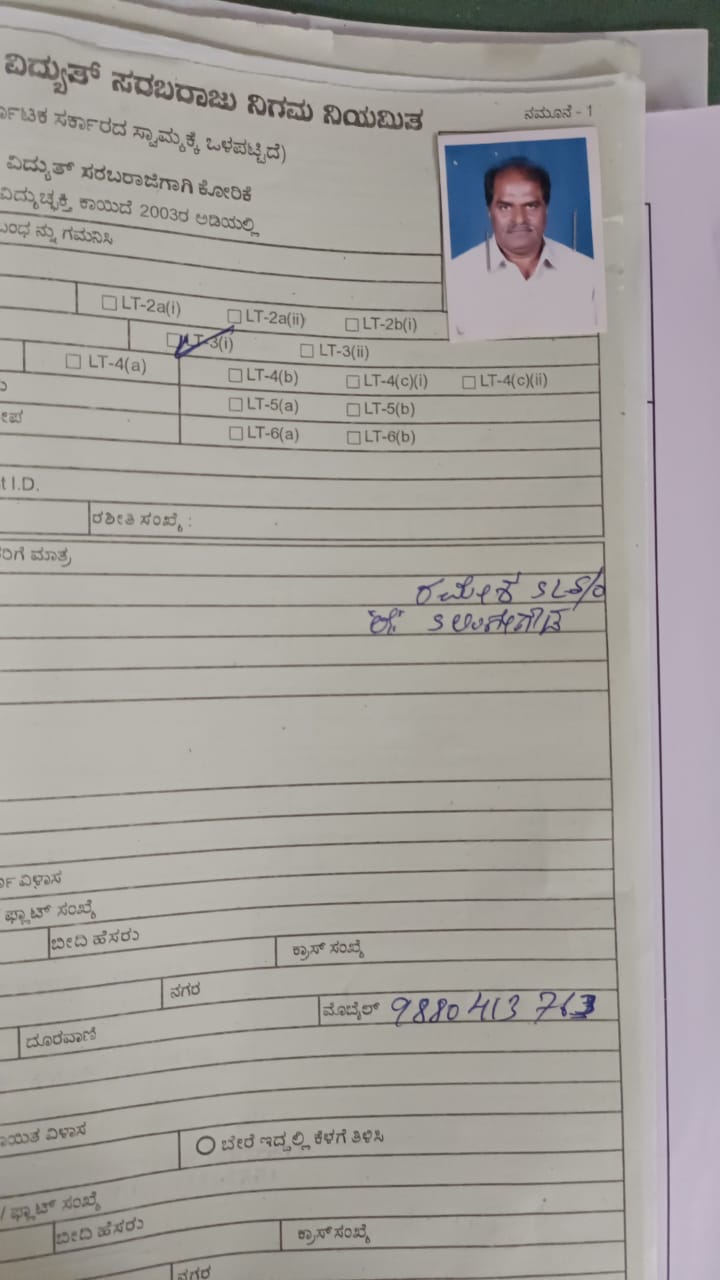 ವಿದ್ಯುತ್ ಸರಬರಾಜು ನಿಗಮ ನಿಯಮಿತ
ನಮೂನೆ - 1
ಸರ್ಕಾರದ ಸ್ವಾಮ್ಯಕ್ಕೆ ಒಳಪಟ್ಟಿದೆ)
ವಿದ್ಯುತ್ ಸರಬರಾಜಿಗಾಗಿ ಕೋರಿಕೆ
ವಿದ್ಯುಚ್ಛಕ್ತಿ ಕಾಯಿದೆ 2003ರ ಅಡಿಯಲ್ಲಿ
ಗಮನಿಸಿ
LT-2a(i) LT-2a(ii) LT-2b(i)
LT-3(i) LT-3(ii)
LT-4(a) LT-4(b) LT-4(c)(i) LT-4(c)(ii)
LT-5(a) LT-5(b)
LT-6(a) LT-6(b)
I.D.
ರಶೀತಿ ಸಂಖ್ಯೆ :
ಮಾತ್ರ
ರಮೇಶ SL S/o
ವಿಳಾಸ
ಫ್ಲಾಟ್ ಸಂಖ್ಯೆ
ಬೀದಿ ಹೆಸರು ಕ್ರಾಸ್ ಸಂಖ್ಯೆ
ನಗರ
ದೂರವಾಣಿ ಮೊಬೈಲ್ 9880413763
ವಿಳಾಸ ಬೇರೆ ಇದ್ದಲ್ಲಿ ಕೆಳಗೆ ತಿಳಿಸಿ
/ ಫ್ಲಾಟ್ ಸಂಖ್ಯೆ
ಬೀದಿ ಹೆಸರು ಕ್ರಾಸ್ ಸಂಖ್ಯೆ
ನಗರ